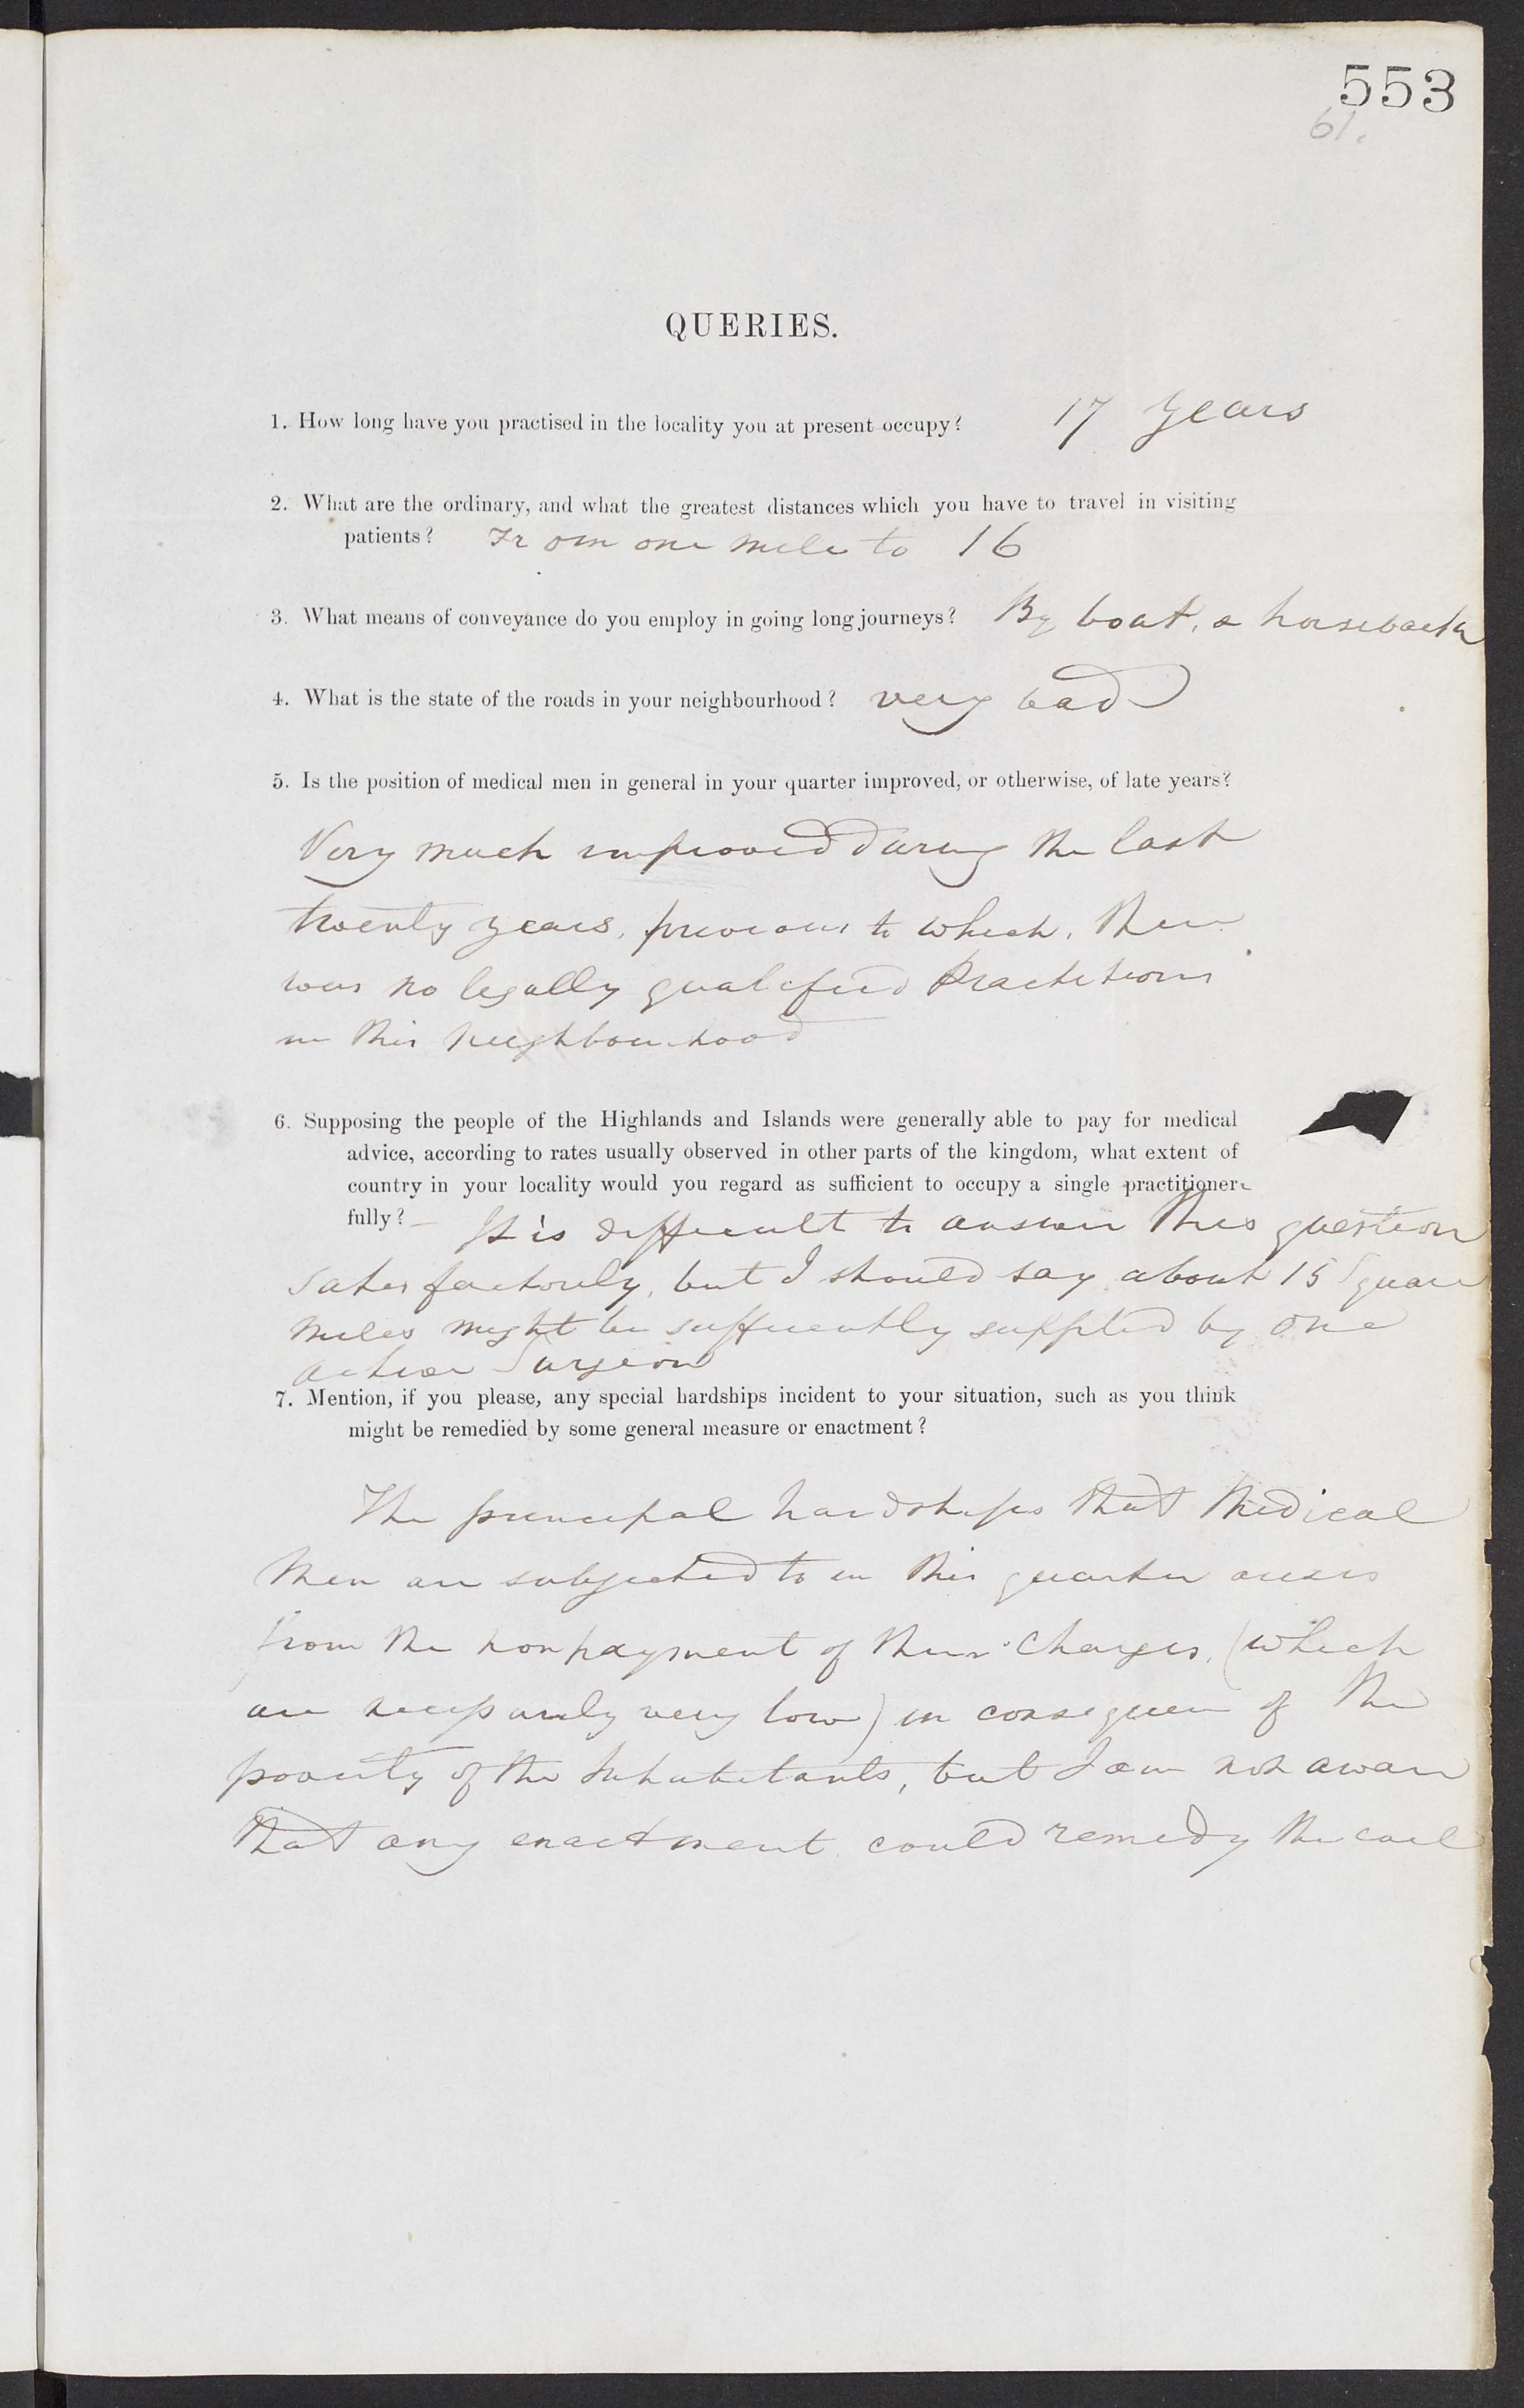 553
61.
QUERIES.
1. How long have you practised in the locality you at present occupy? 17 years
2. What are the ordinary, and what the greatest distances which you have to travel in visiting
patients? From one mile to 16
3. What means of conveyance do you employ in going long journeys? By boat, or horseback
4. What is the state of the roads in your neighbourhood? very bad
5. Is the position of medical men in general in your quarter improved, or otherwise, of late years?
Very much improved during the last
twenty years, previous to which, there
was no legally qualified Practitioner
in this neighbourhood
6. Supposing the people of the Highlands and Islands were generally able to pay for medical
advice, according to rates usually observed in other parts of the kingdom, what extent of
country in your locality would you regard as sufficient to occupy a single practitioner
fully? It is difficult to answer this question
satisfactorily, but I should say about 15 Square
miles might be sufficiently supplied by one
active Surgeon
7. Mention, if you please, any special hardships incident to your situation, such as you think
might be remedied by some general measure or enactment?
The principal hardships that Medical
Men are subjected to in this quarter arises
from the nonpayment of their charges, (which
are necessarily very low) in consequence of the
poverty of the Inhabitants, but I am not aware
that any enactment could remedy the evil